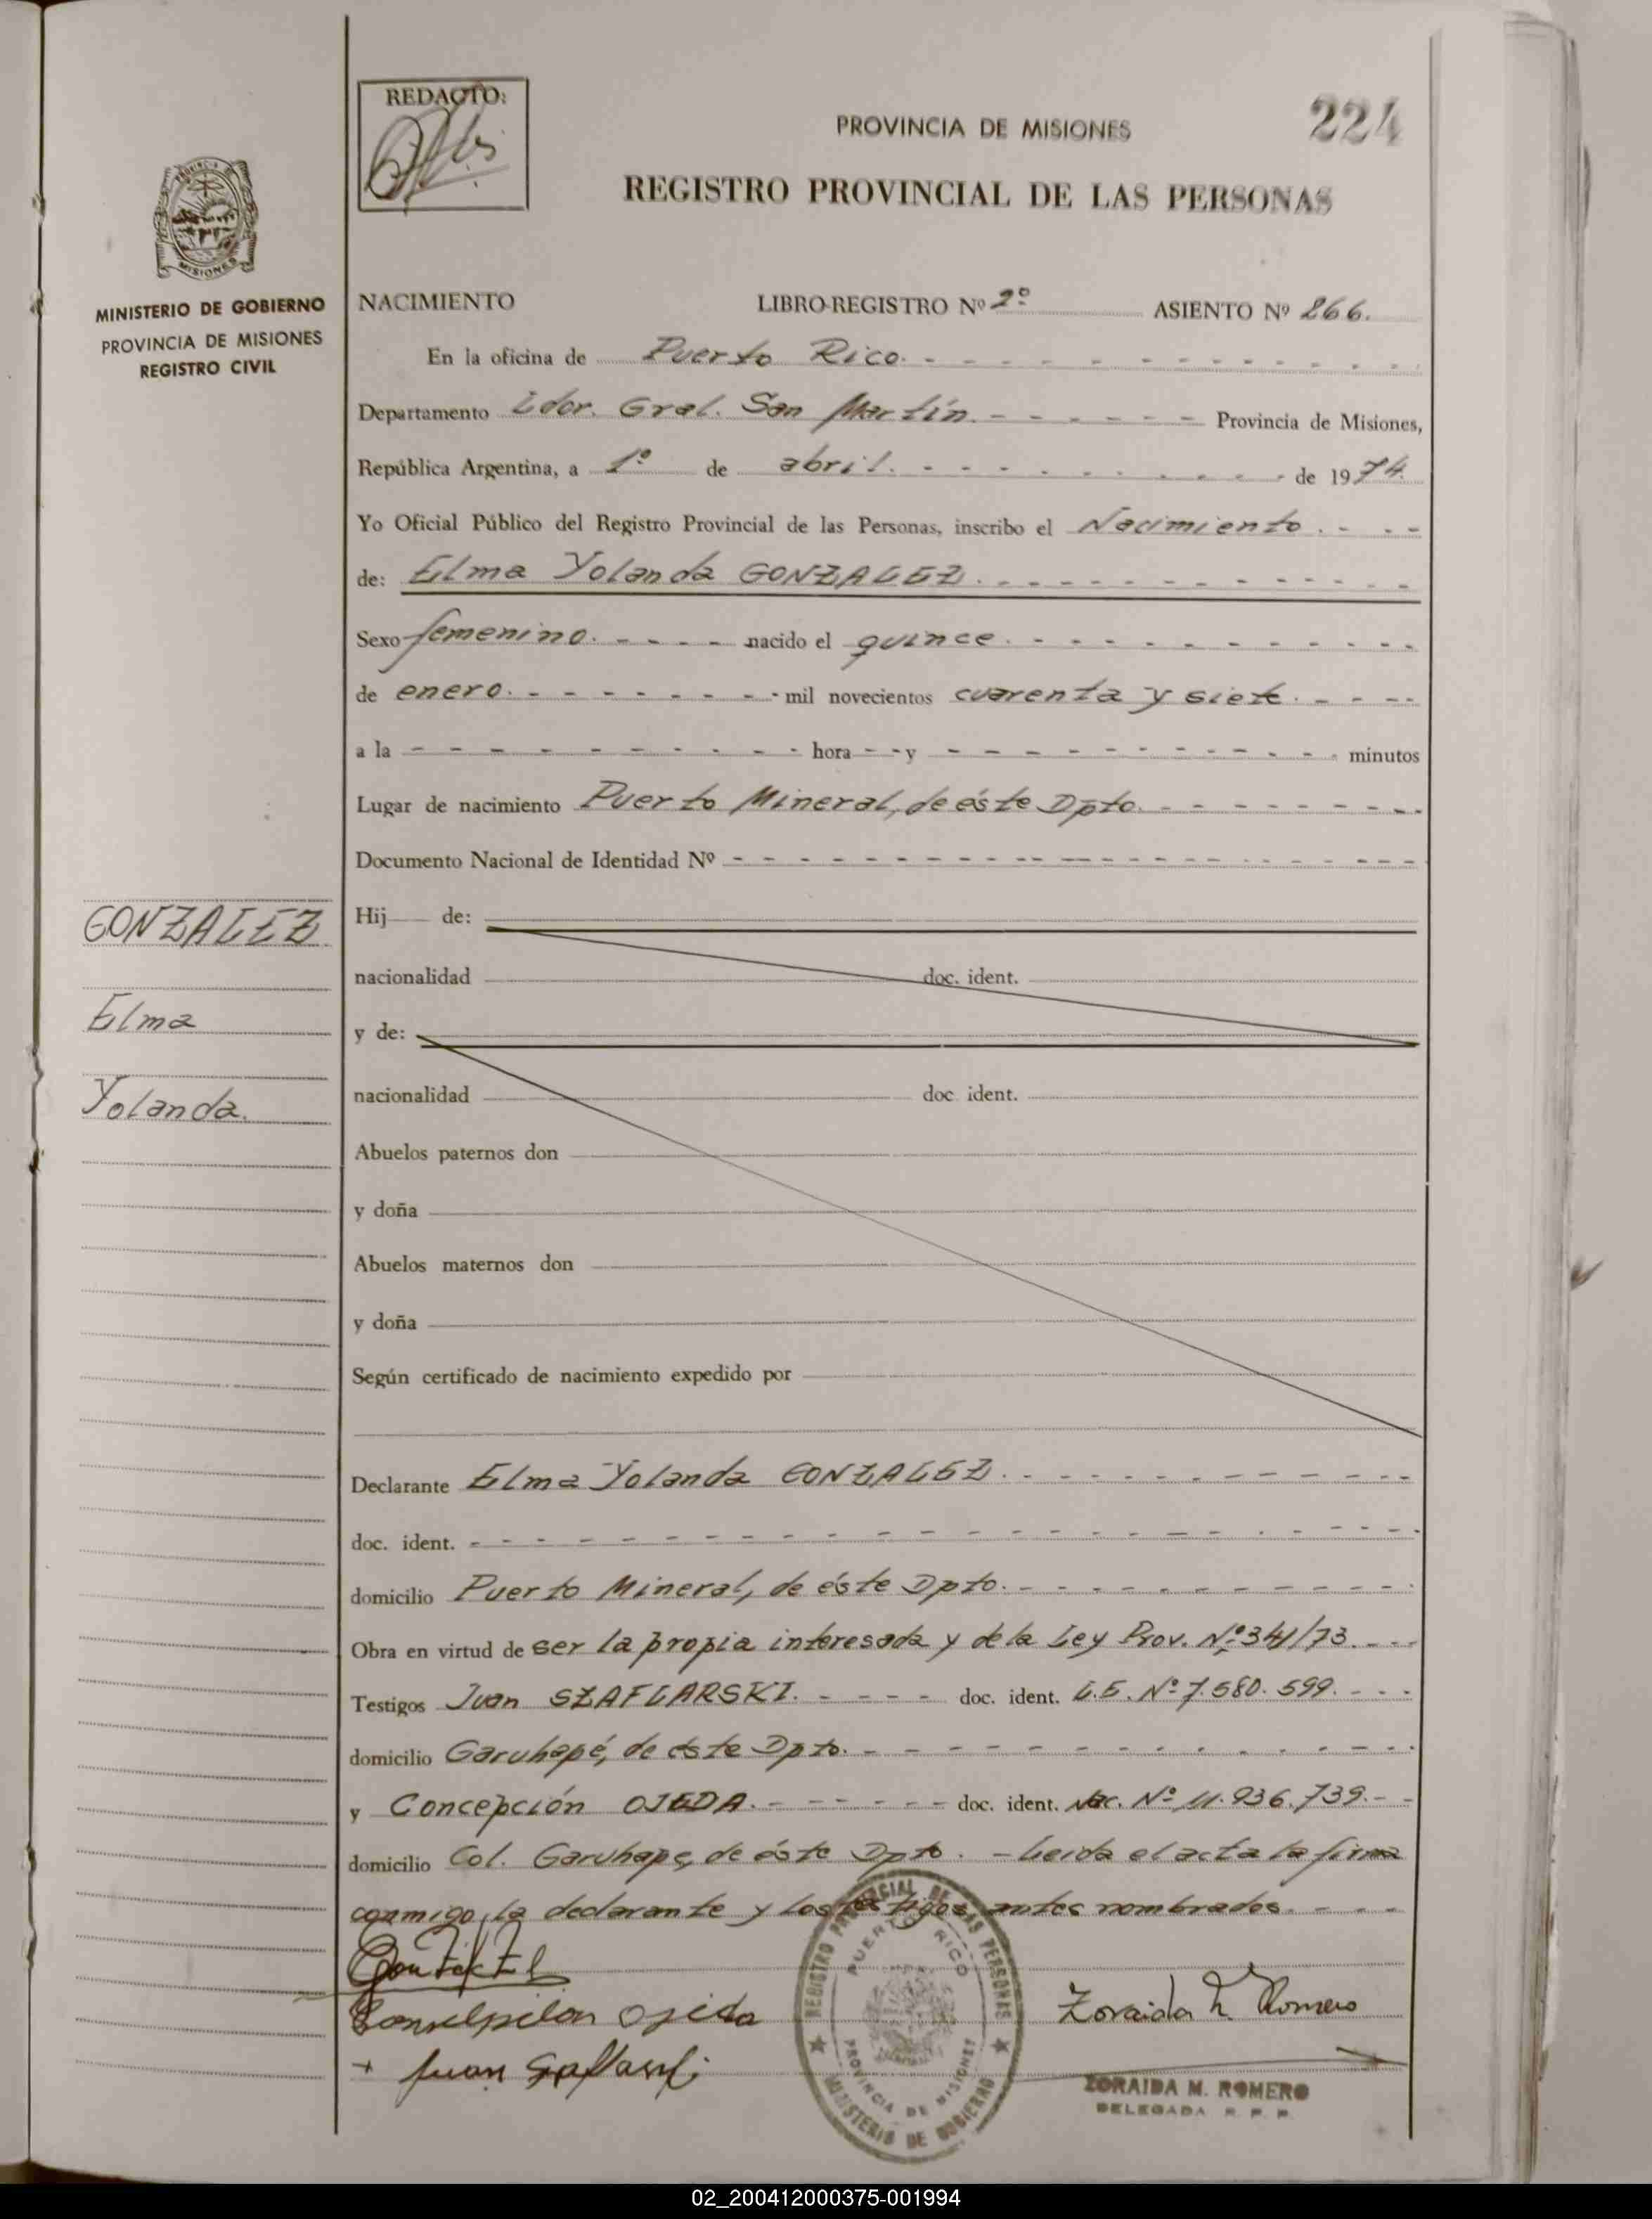 REDACTO:
PROVINCIA DE MISIONES
224
REGISTRO PROVINCIAL DE LAS PERSONAS
MISIONES
MINISTERIO DE GOBIERNO
PROVINCIA DE MISIONES
REGISTRO CIVIL
NACIMIENTO LIBRO-REGISTRO Nº 2º ASIENTO Nº 266.
En la oficina de Puerto Rico.
Departamento Ldor. Gral. San Martín. Provincia de Misiones,
República Argentina, a 1º de abril. de 1974.
Yo Oficial Público del Registro Provincial de las Personas, inscribo el Nacimiento.
de: Elma Yolanda GONZALEZ.
Sexo femenino. nacido el quince.
de enero. mil novecientos cuarenta y siete.
a la hora y minutos
Lugar de nacimiento Puerto Mineral, de éste Dpto.
Documento Nacional de Identidad Nº
GONZALEZ.
Elma
Yolanda.
Hij de:
nacionalidad doc. ident.
y de:
nacionalidad doc. ident.
Abuelos paternos don
y doña
Abuelos maternos don
y doña
Según certificado de nacimiento expedido por
Declarante Elma Yolanda GONZALEZ.
doc. ident.
domicilio Puerto Mineral, de éste Dpto.
Obra en virtud de ser la propia interesada y de la Ley Prov. Nº 341/73.
Testigos Juan SZAFLARSKI. doc. ident. L.E. Nº 7.580.599.
domicilio Garuhapé, de éste Dpto.
y Concepción OJEDA. doc. ident. Nac. Nº 11.936.739.
domicilio Col. Garuhape, de éste Dpto. - Leida el acta la firma
conmigo, la declarante y los testigos antes nombrados.
REGISTRO PROVINCIAL DE LAS PERSONAS
PUERTO RICO
PROVINCIA DE MISIONES
MINISTERIO DE GOBIERNO
Zoraida M Romero
ZORAIDA M. ROMERO
DELEGADA R. P. P.
02_200412000375-001994